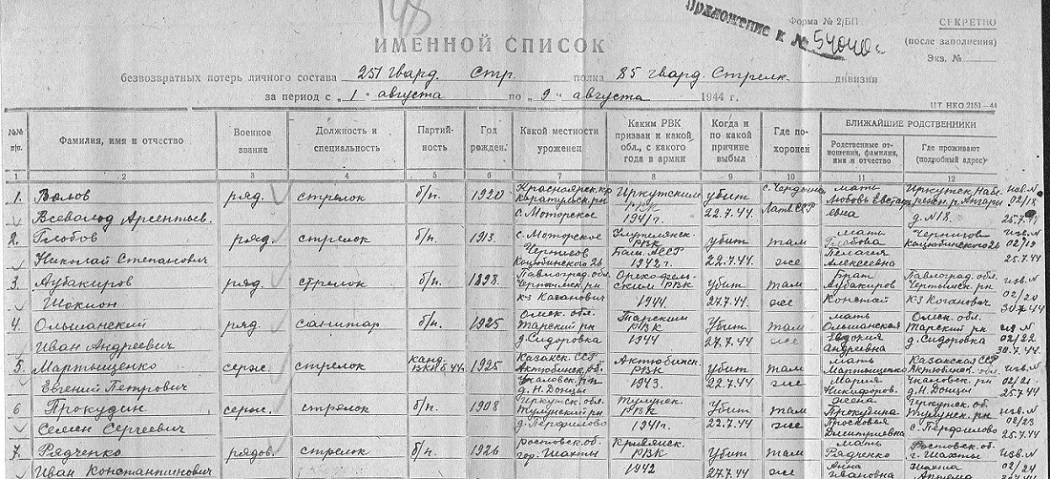 Приложение к № 54040с
Форма № 2/БП
СЕКРЕТНО
(после заполнения)
Экз. №
ИМЕННОЙ СПИСОК
безвозвратных потерь личного состава 251 гвард. Стр. полка 85 гвард. Стрелк. дивизии
за период с „1“ августа по „9“ августа 1944 г.
ЦТ НКО 2151—44
№№ п/п. Фамилия, имя и отчество Военное звание Должность и специальность Партий-ность Год рожден. Какой местности уроженец Каким РВК призван и какой обл., с какого года в армии Когда и по какой причине выбыл Где по-хоронен БЛИЖАЙШИЕ РОДСТВЕННИКИ
Родственные от-ношения, фамилия, имя и отчество Где проживают (подробный адрес)
1 2 3 4 5 6 7 8 9 10 11 12
1. Валов ряд. стрелок б/п. 1920 Красноярск. кр. Иркутским убит мать Иркутск
Всеволод Арсентьев. Каратузск. рн с. Моторское РВК 1941г. 22.7.44 Латв ССР д. N 18. 02/18 25.7.44
2. Глобов ряд. стрелок б/п. 1913 с. Моторское РВК убит там мать Чернигов
Николай Степанович Чернигов Коцюбинского 26 Баш. АССР 1942г. 22.7.44 же Глобова Пелагия Алексеевна Коцюбинского 26 02/19 25.7.44
3 Аубакиров ряд. стрелок б/п. 1898 Павлоград. обл. РВК убит там Брат Павлоград. обл.
Шакпон к-з Каганович 1944. 27.7.44 же Аубакиров к-з Коганович 02/20 30.7.44
4. Ольшанский ряд. санитар б/п. 1925 Омск. обл. Тарским Убит там мать Омск. обл.
Иван Андреевич Тарский рн д. Сидоровка РВК 1944 27.7.44 же Ольшанская Евдокия Андреевна Тарский рн д. Сидоровка 02/22 30.7.44
5. Мартыщенко серж. стрелок канд. ВКП(б) 44г. 1925 Казахск. ССР Актюбинск. Убит там мать Казахская ССР
Евгений Петрович Актюбинск. об. Чкаловск. р-н д. Н. Донцы РВК 1943. 22.7.44 же Мартыщенко Мария Никифоров. Актюбинск. обл. Чкаловск. рн д. Н. Донцы 02/21 25.7.44
6 Прокудин серж. стрелок б/п. 1908 Иркутск. обл. Тулунск. Убит там жена Иркутск. об.
Семен Сергеевич Тулунский рн д. Перфилово РВК 1941г. 22.7.44 же Прокудина Просковья Дмитриевна Тулунск. рн с. Перфилово 02/23 25.7.44
7. Рядченко рядов. стрелок б/п. 1926 Ростовск. об. Убит там мать Ростовск. об.
Иван Константинович гор. Шахты РВК 1942 27.7.44 же Рядченко Анна Ивановна г. Шахты 02/24